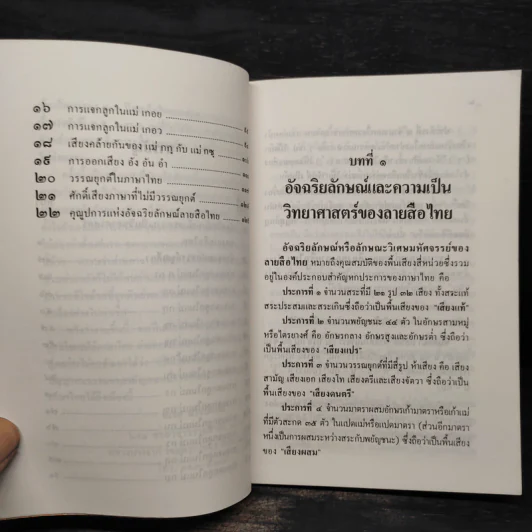 ๑๖ การแจกลูกในแม่ เกอย
๑๗ การแจกลูกในแม่ เกอว
๑๘ เสียงคล้ายกันของ แม่ กฎ กับ แม่
๑๙ การออกเสียง อัง อัน อำ
๒๐ วรรณยุกต์ในภาษาไทย
๒๑ ศักดิ์เสียงภาษาที่ไม่มีวรรณยุกต์
๒๒ คุณูปการแห่งอัจฉริยลักษณ์ลายสือไทย
บทที่ ๑
อัจฉริยลักษณ์และความเป็น
วิทยาศาสตร์ของลายสือไทย
อัจฉริยลักษณ์หรือลักษณะวิเศษมหัศจรรย์ของ
ลายสือไทย หมายถึงคุณสมบัติของพื้นเสียงสี่หน่วยซึ่งรวม
อยู่ในองค์ประกอบสำคัญหกประการของภาษาไทย คือ
ประการที่ ๑ จำนวนสระที่มี ๒๑ รูป ๓๒ เสียง ทั้งสระแท้
สระประสมและสระเกินซึ่งถือว่าเป็นพื้นเสียงของ "เสียงแท้"
ประการที่ ๒ จำนวนพยัญชนะ ๔๔ ตัว ในอักษรสามหมู่
หรือไตรยางศ์ คือ อักษรกลาง อักษรสูงและอักษรต่ำ ซึ่งถือว่า
เป็นพื้นเสียงของ "เสียงแปร"
ประการที่ ๓ จำนวนวรรณยุกต์ที่มีสี่รูป ห้าเสียง คือ เสียง
สามัญ เสียงเอก เสียงโท เสียงตรีและเสียงจัตวา ซึ่งถือว่าเป็น
พื้นเสียงของ "เสียงดนตรี"
ประการที่ ๔ จำนวนมาตราผสมอักษรเก้ามาตราหรือเก้าแม่
ที่มีตัวสะกด ๓๕ ตัว ในแปดแม่หรือแปดมาตรา (ส่วนอีกมาตรา
หนึ่งเป็นการผสมระหว่างสระกับพยัญชนะ) ซึ่งถือว่าเป็นพื้นเสียง
ของ "เสียงผสม"